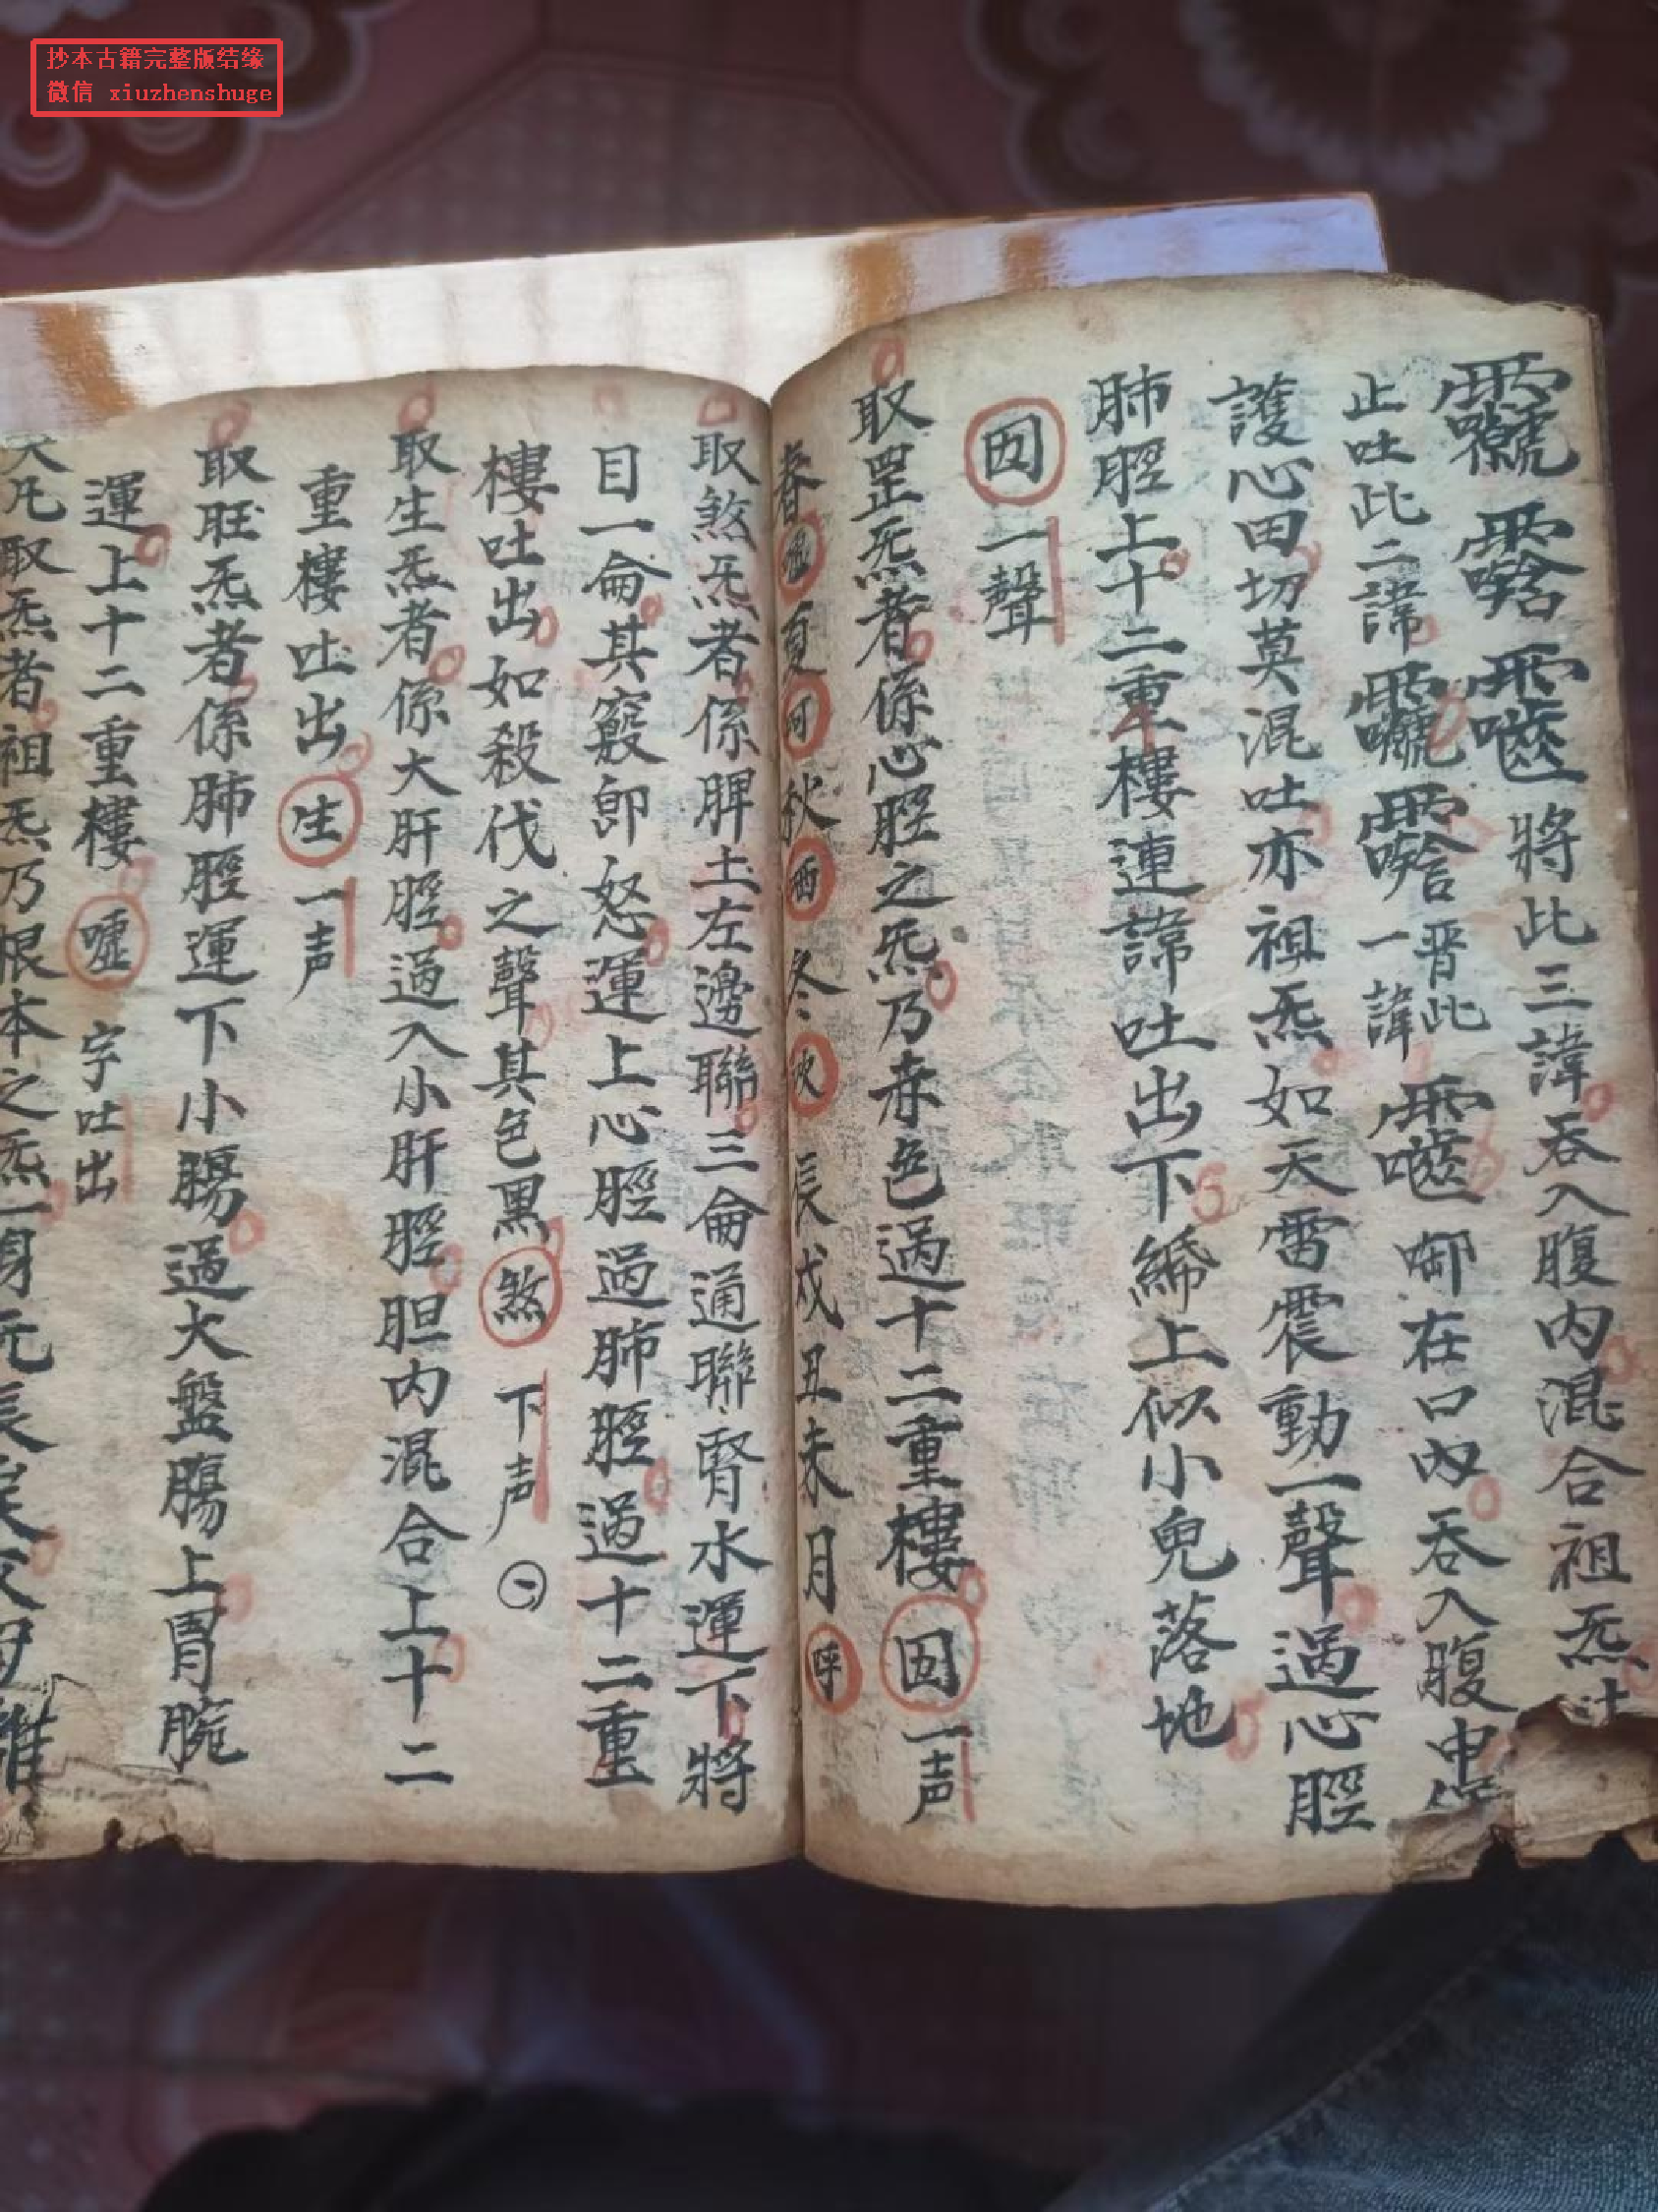 抄本古籍完整版结缘
微信 xiuzhenshuge
將此三諱吞入腹内混合祖炁
止吐此二諱 晋此一諱 啣在口内吞入腹中
護心田切莫混吐亦祖炁如天雷震動一聲過心脛
肺脛上十二重樓連諱吐出下締上似小兒落地
囚一聲
取罡炁者係心脛之炁乃赤色過十二重樓囚一声
春噓夏呵秋呬冬吹辰戌丑未月呼
取煞炁者係脾土左邊聯三侖通聯腎水運下將
目一侖其竅即怒運上心脛過肺脛過十二重
樓吐出如殺伐之聲其色黑煞下声
取生炁者係大肝脛過入小肝脛胆内混合上十二
重樓吐出生一声
取旺炁者係肺脛運下小腸過大盤腸上胃腕
運上十二重樓噓字吐出
凡取炁者祖炁乃根本之炁一身